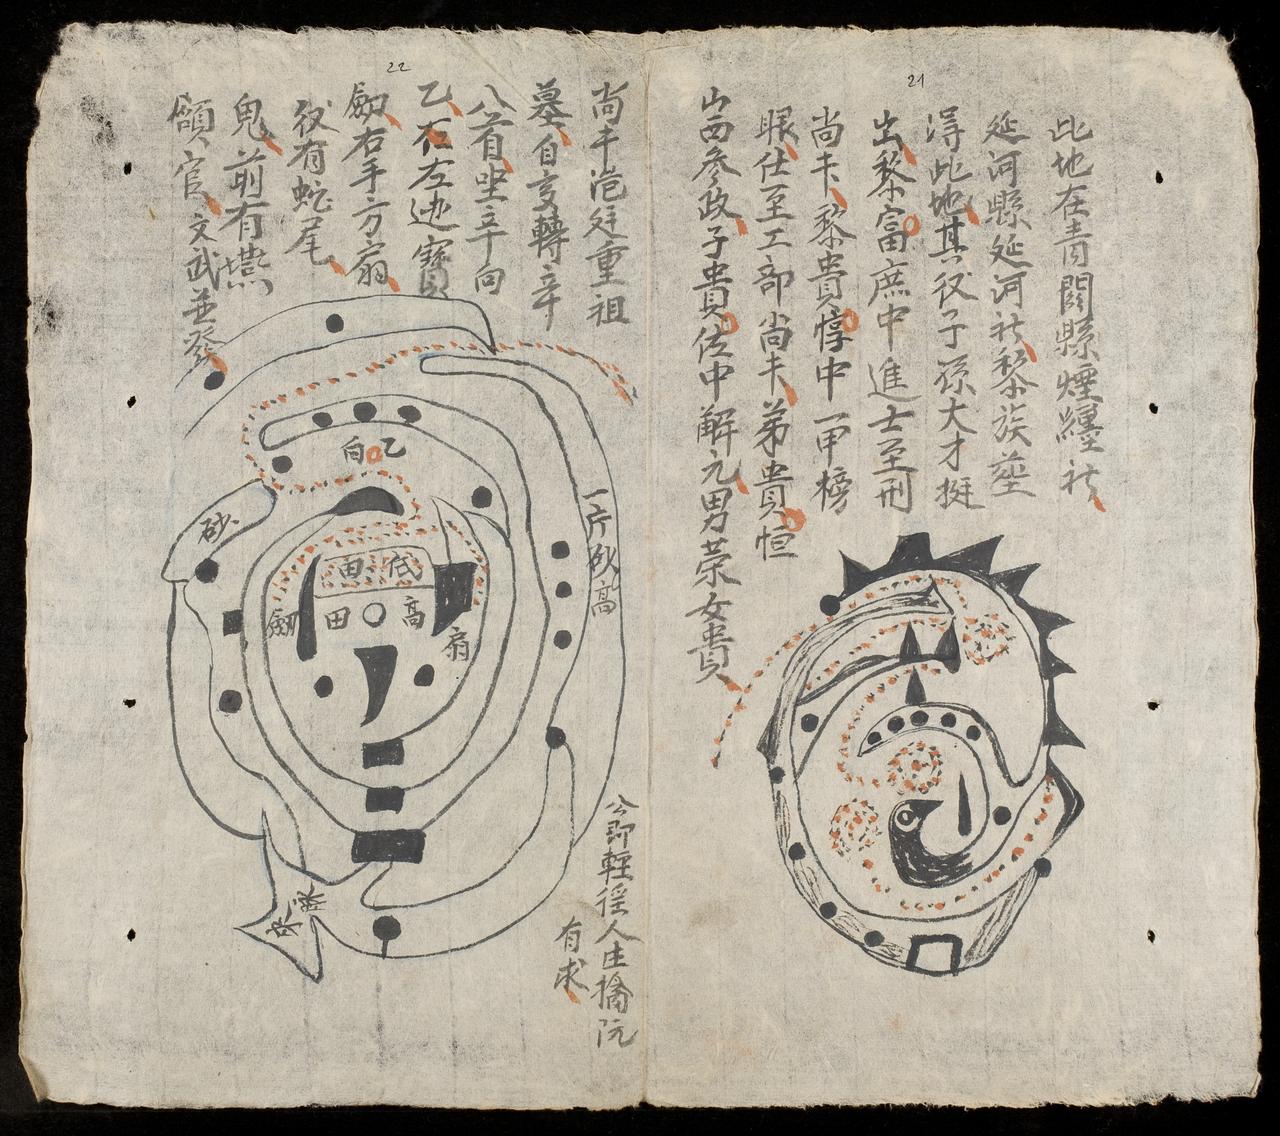 21
此地在青関縣煙纆社
延河縣延河社黎族塋
淂此地其後子孫大才挺
出黎富庶中進士至刑
尚卡黎貴惇中一甲榜
眼仕至工部尚卡弟貴恒
山西參政子貴佐中解元男荣女貴
22
尚卡范廷重祖
墓自亥轉辛
入首坐辛向
乙右左边寳
劔右手方扇
後有蛇尾
鬼前有
領官文武並發
向乙
砂
一片砂高
田低
劔
田
高
扇
公即輕徭人生擒阮
有求